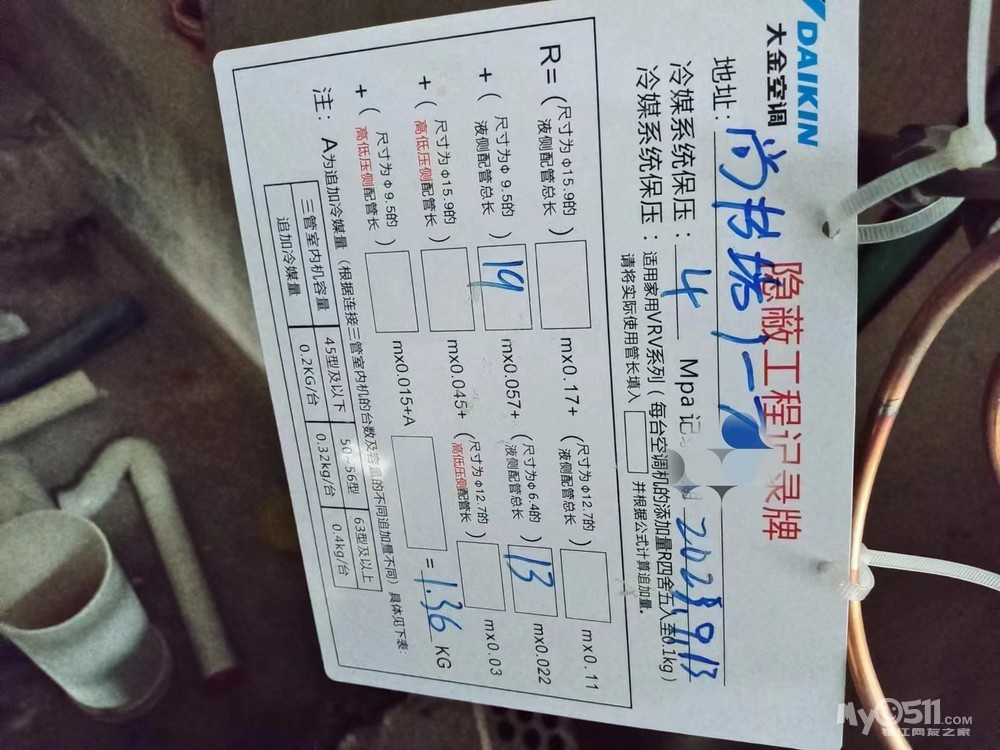 DAIKIN
大金空调
隐蔽工程记录牌
地址：尚书塘
冷媒系统保压：4 Mpa 记录 2023 9/13
冷媒系统保压：适用家用VRV系列（每台空调机的添加量R四舍五入至0.1kg）
请将实际使用管长填入 并根据公式计算追加量。
R=（尺寸为Φ15.9的液侧配管总长）mx0.17+（尺寸为Φ12.7的液侧配管总长）mx0.11
+（尺寸为Φ9.5的液侧配管总长）19 mx0.057+（尺寸为Φ6.4的液侧配管总长）13 mx0.022
+（尺寸为Φ15.9的高低压侧配管长）mx0.045+（尺寸为Φ12.7的高低压侧配管长）mx0.03
+（尺寸为Φ9.5的高低压侧配管长）mx0.015+A =1.36 KG
注：A为追加冷媒量（根据连接三管室内机的台数及容量的不同追加量不同）具体见下表：
三管室内机容量 45型及以下 50-56型 63型及以上
追加冷媒量 0.2KG/台 0.32kg/台 0.4kg/台
My0511.com
镇江网友之家